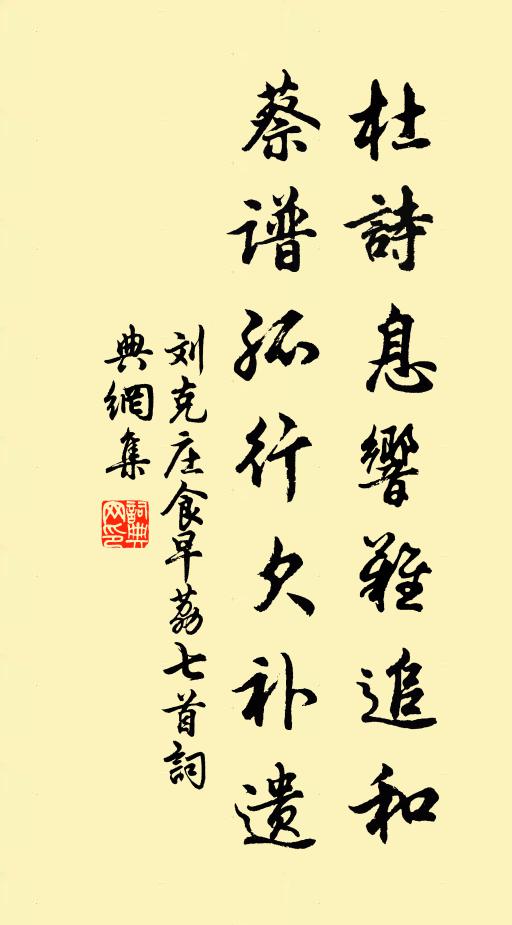 杜詩息響難追和
蔡谱孤行欠补遗
刘克庄食早荔七首詞
典網集
詞典网印